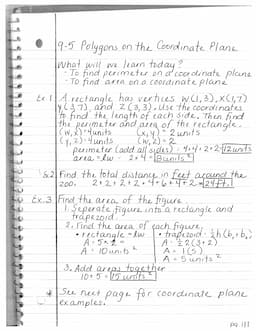 9-5 Polygons on the Coordinate Plane
What will we learn today?
- To find perimeter on a coordinate plane
- To find area on a coordinate plane
Ex.1 A rectangle has vertices W(1,3), X(1,7)
Y(3,7), and Z(3,3). Use the coordinates
to find the length of each side. Then find
the perimeter and area of the rectangle.
(W,X)=4units (X,Y)=2units
(Y,Z)=4units (W,Z)=2
perimeter (add all sides): 4+4+2+2=12units
area=lw 2×4=8units²
Find the total distance in feet around the
zoo. 2+2+2+2+4+6+4+2=24ft.
Ex.3 Find the area of the figure.
1. Seperate figure into a rectangle and
trapezoid.
2. Find the area of each figure.
• rectangle=lw • trapezoid: ½h(b₁+b₂)
A=5×2 A=½2(3+2)
A=10units² A=1(5)
A=5units²
3. Add areas together
10+5=15units²
See next page for coordinate plane
examples.
pg. 111